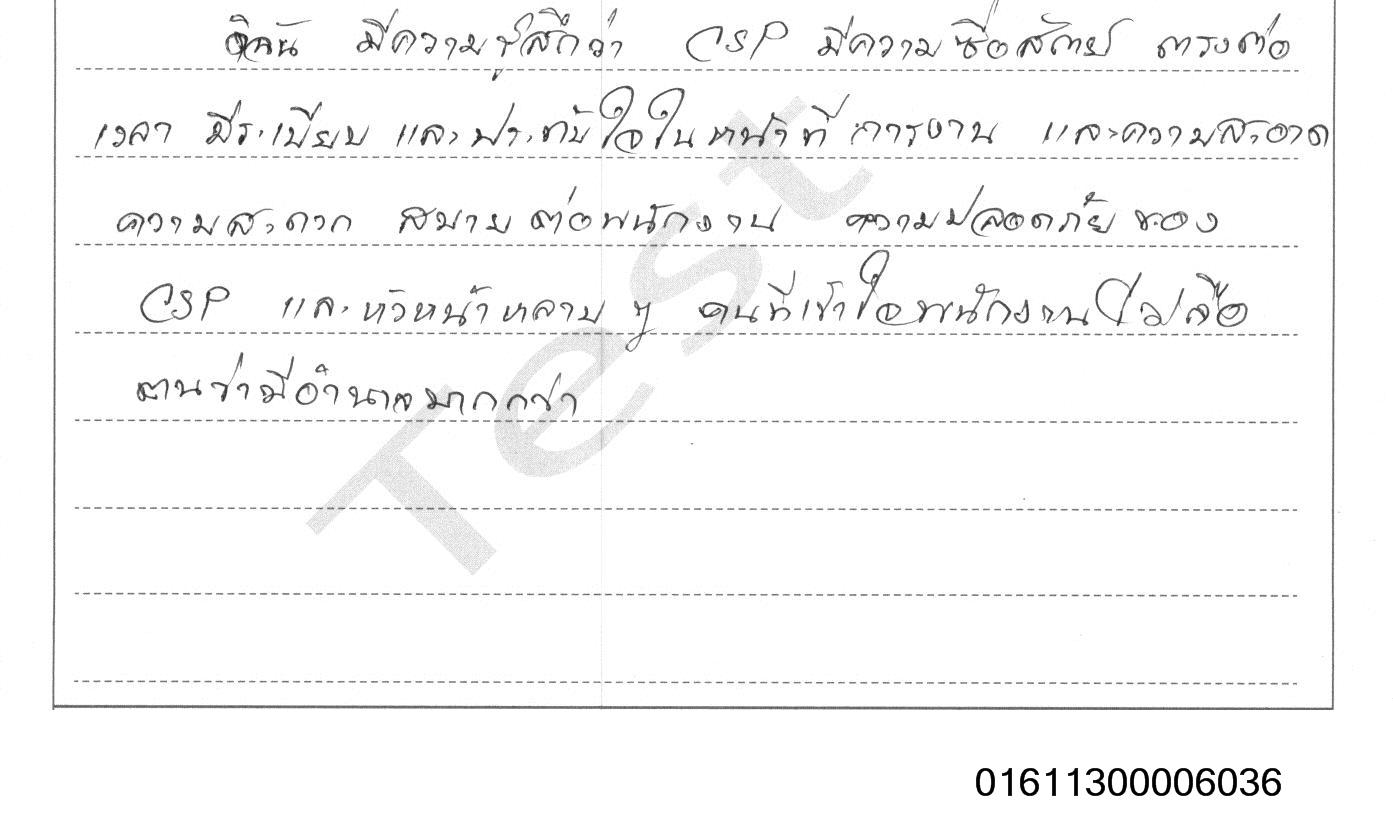 ดิฉัน มีความรู้สึกว่า CSP มีความซื่อสัตย์ ตรงต่อ
เวลา มีระเบียบ และประทับใจในหน้าที่การงาน และความสะอาด
ความสะดวก สบาย ต่อพนักงาน ความปลอดภัย ของ
CSP และหัวหน้าหลาย ๆ คนที่เข้าใจพนักงานไม่ถือ
ตนว่ามีอำนาจมากกว่า
Test
01611300006036